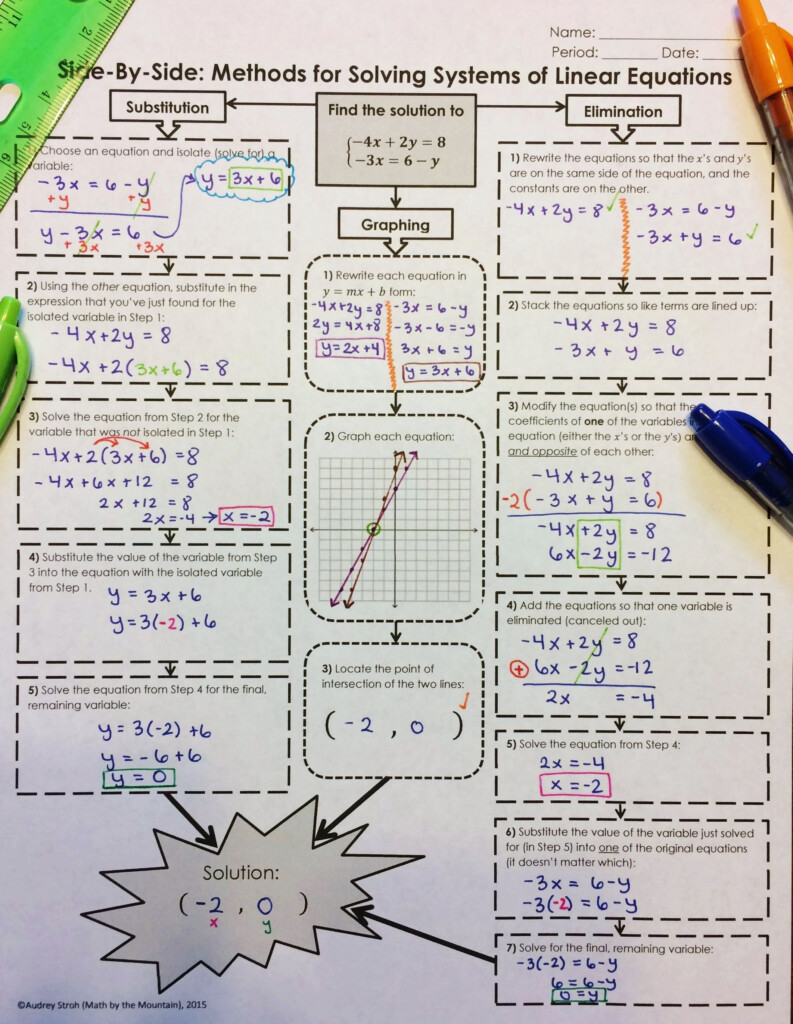 Name:
Period: Date:
Side-By-Side: Methods for Solving Systems of Linear Equations
Substitution
Choose an equation and isolate (solve for) a
variable:
-3x = 6 - y
+y +y
y - 3x = 6
+3x +3x
y = 3x+6
2) Using the other equation, substitute in the
expression that you've just found for the
isolated variable in Step 1:
-4x+2y = 8
-4x+2(3x+6) = 8
3) Solve the equation from Step 2 for the
variable that was not isolated in Step 1:
-4x+2(3x+6) = 8
-4x+6x+12 = 8
2x+12 = 8
2x=-4 → x=-2
4) Substitute the value of the variable from Step
3 into the equation with the isolated variable
from Step 1.
y = 3x+6
y=3(-2)+6
5) Solve the equation from Step 4 for the final,
remaining variable:
y= 3(-2)+6
y= -6+6
y = 0
Find the solution to
{-4x + 2y = 8
-3x = 6 - y
Graphing
1) Rewrite each equation in
y = mx + b form:
-4x+2y=8 -3x = 6-y
2y=4x+8 -3x-6=-y
y=2x+4 3x+6=y
y=3x+6
2) Graph each equation:
3) Locate the point of
intersection of the two lines:
(-2, 0)
Elimination
1) Rewrite the equations so that the x's and y's
are on the same side of the equation, and the
constants are on the other.
-4x+2y=8 ✓ -3x = 6-y
-3x+y=6 ✓
2) Stack the equations so like terms are lined up:
-4x+2y = 8
-3x+ y = 6
3) Modify the equation(s) so that the
coefficients of one of the variables
equation (either the x's or the y's)
and opposite of each other:
-4x+2y = 8
-2(-3x+y = 6)
-4x+2y = 8
6x-2y = -12
4) Add the equations so that one variable is
eliminated (canceled out):
-4x+2y = 8
+ 6x-2y = -12
2x = -4
5) Solve the equation from Step 4:
2x = -4
x = -2
6) Substitute the value of the variable just solved
for (in Step 5) into one of the original equations
(it doesn't matter which):
-3x = 6-y
-3(-2) = 6-y
7) Solve for the final, remaining variable:
-3(-2) = 6-y
6 = 6-y
0 = y
Solution:
(-2, 0)
x y
©Audrey Stroh (Math by the Mountain), 2015